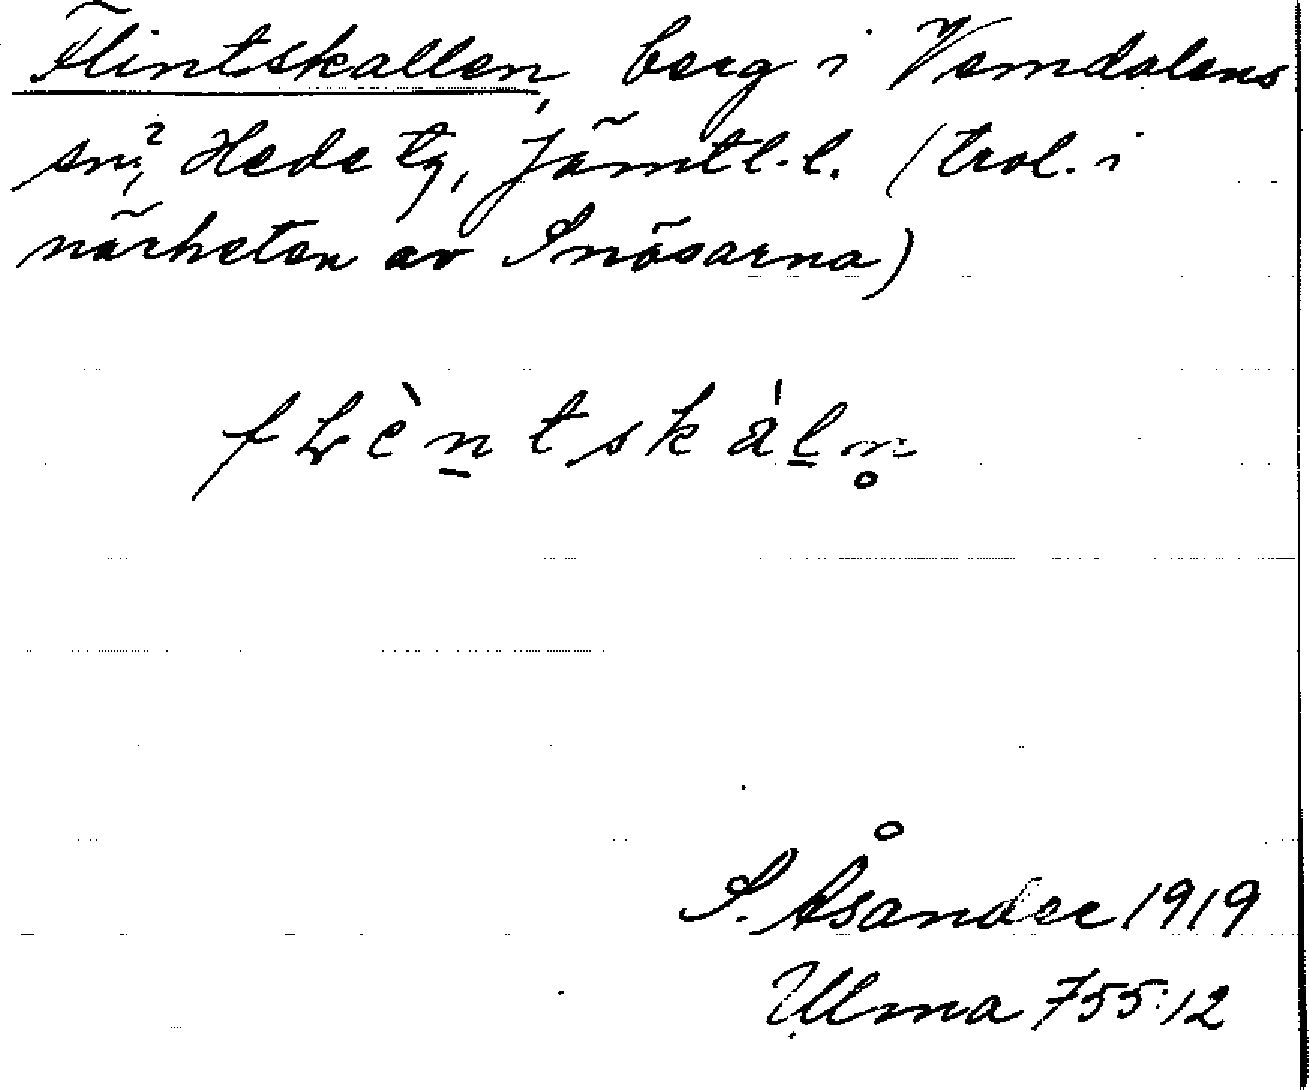 Flintskallen, berg i Vemdalens
sn,? Hede tg, Jämtl. l. (trol. i
närheten av Snösarna)
fLèn̲tskàl̲n̥
S. Åsander 1919
Ulma 755:12